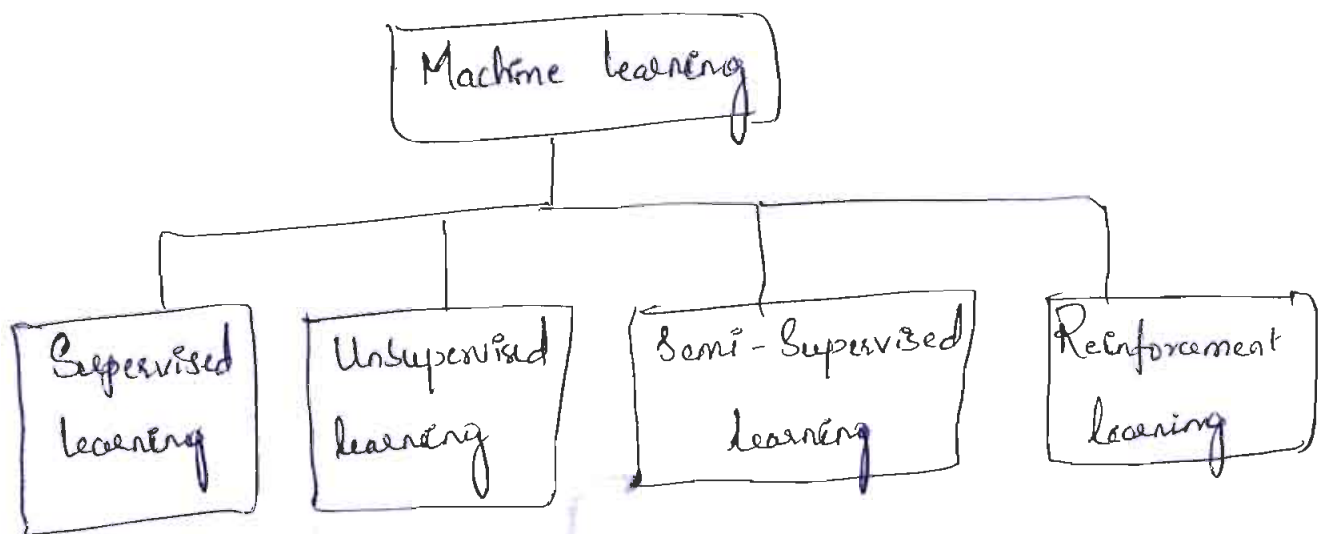 Machine learning
Supervised
learning
Unsupervised
learning
Semi-Supervised
learning
Reinforcement
learning